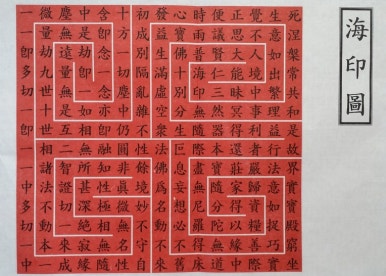 海印圖
死涅槃常共和是故界實寶殿窮坐
生意如出繁理益行法意如捉巧實
覺不人境中事利者嚴歸資糧善際
正思大能昧冥得還莊家得以緣中
便議賢仁三然器本寶隨分陀無道
時雨普海印無隨際盡無尼羅得床
心寶佛十別分生叵息妄想必不舊
發益生滿虛空眾法佛為名動不來
初成別隔亂雜不性餘境妙不守自
十方一切塵中仍圓非真微無名性
含即念一念亦即融知性極相無隨
中是劫即一如相無所甚深絕寂緣
塵無遠量無是互二智證切一來成
微量劫九世十世相諸法不動本一
一一即多切一即一一中多切一中